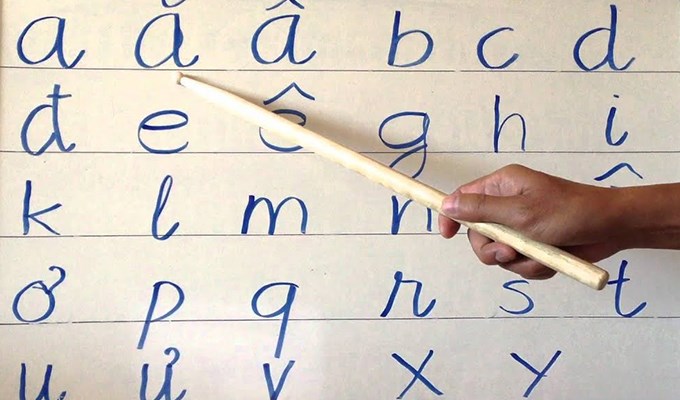 a ă â b c d
đ e ê g h i
k l m n
ơ p q r s t
u ư v x y